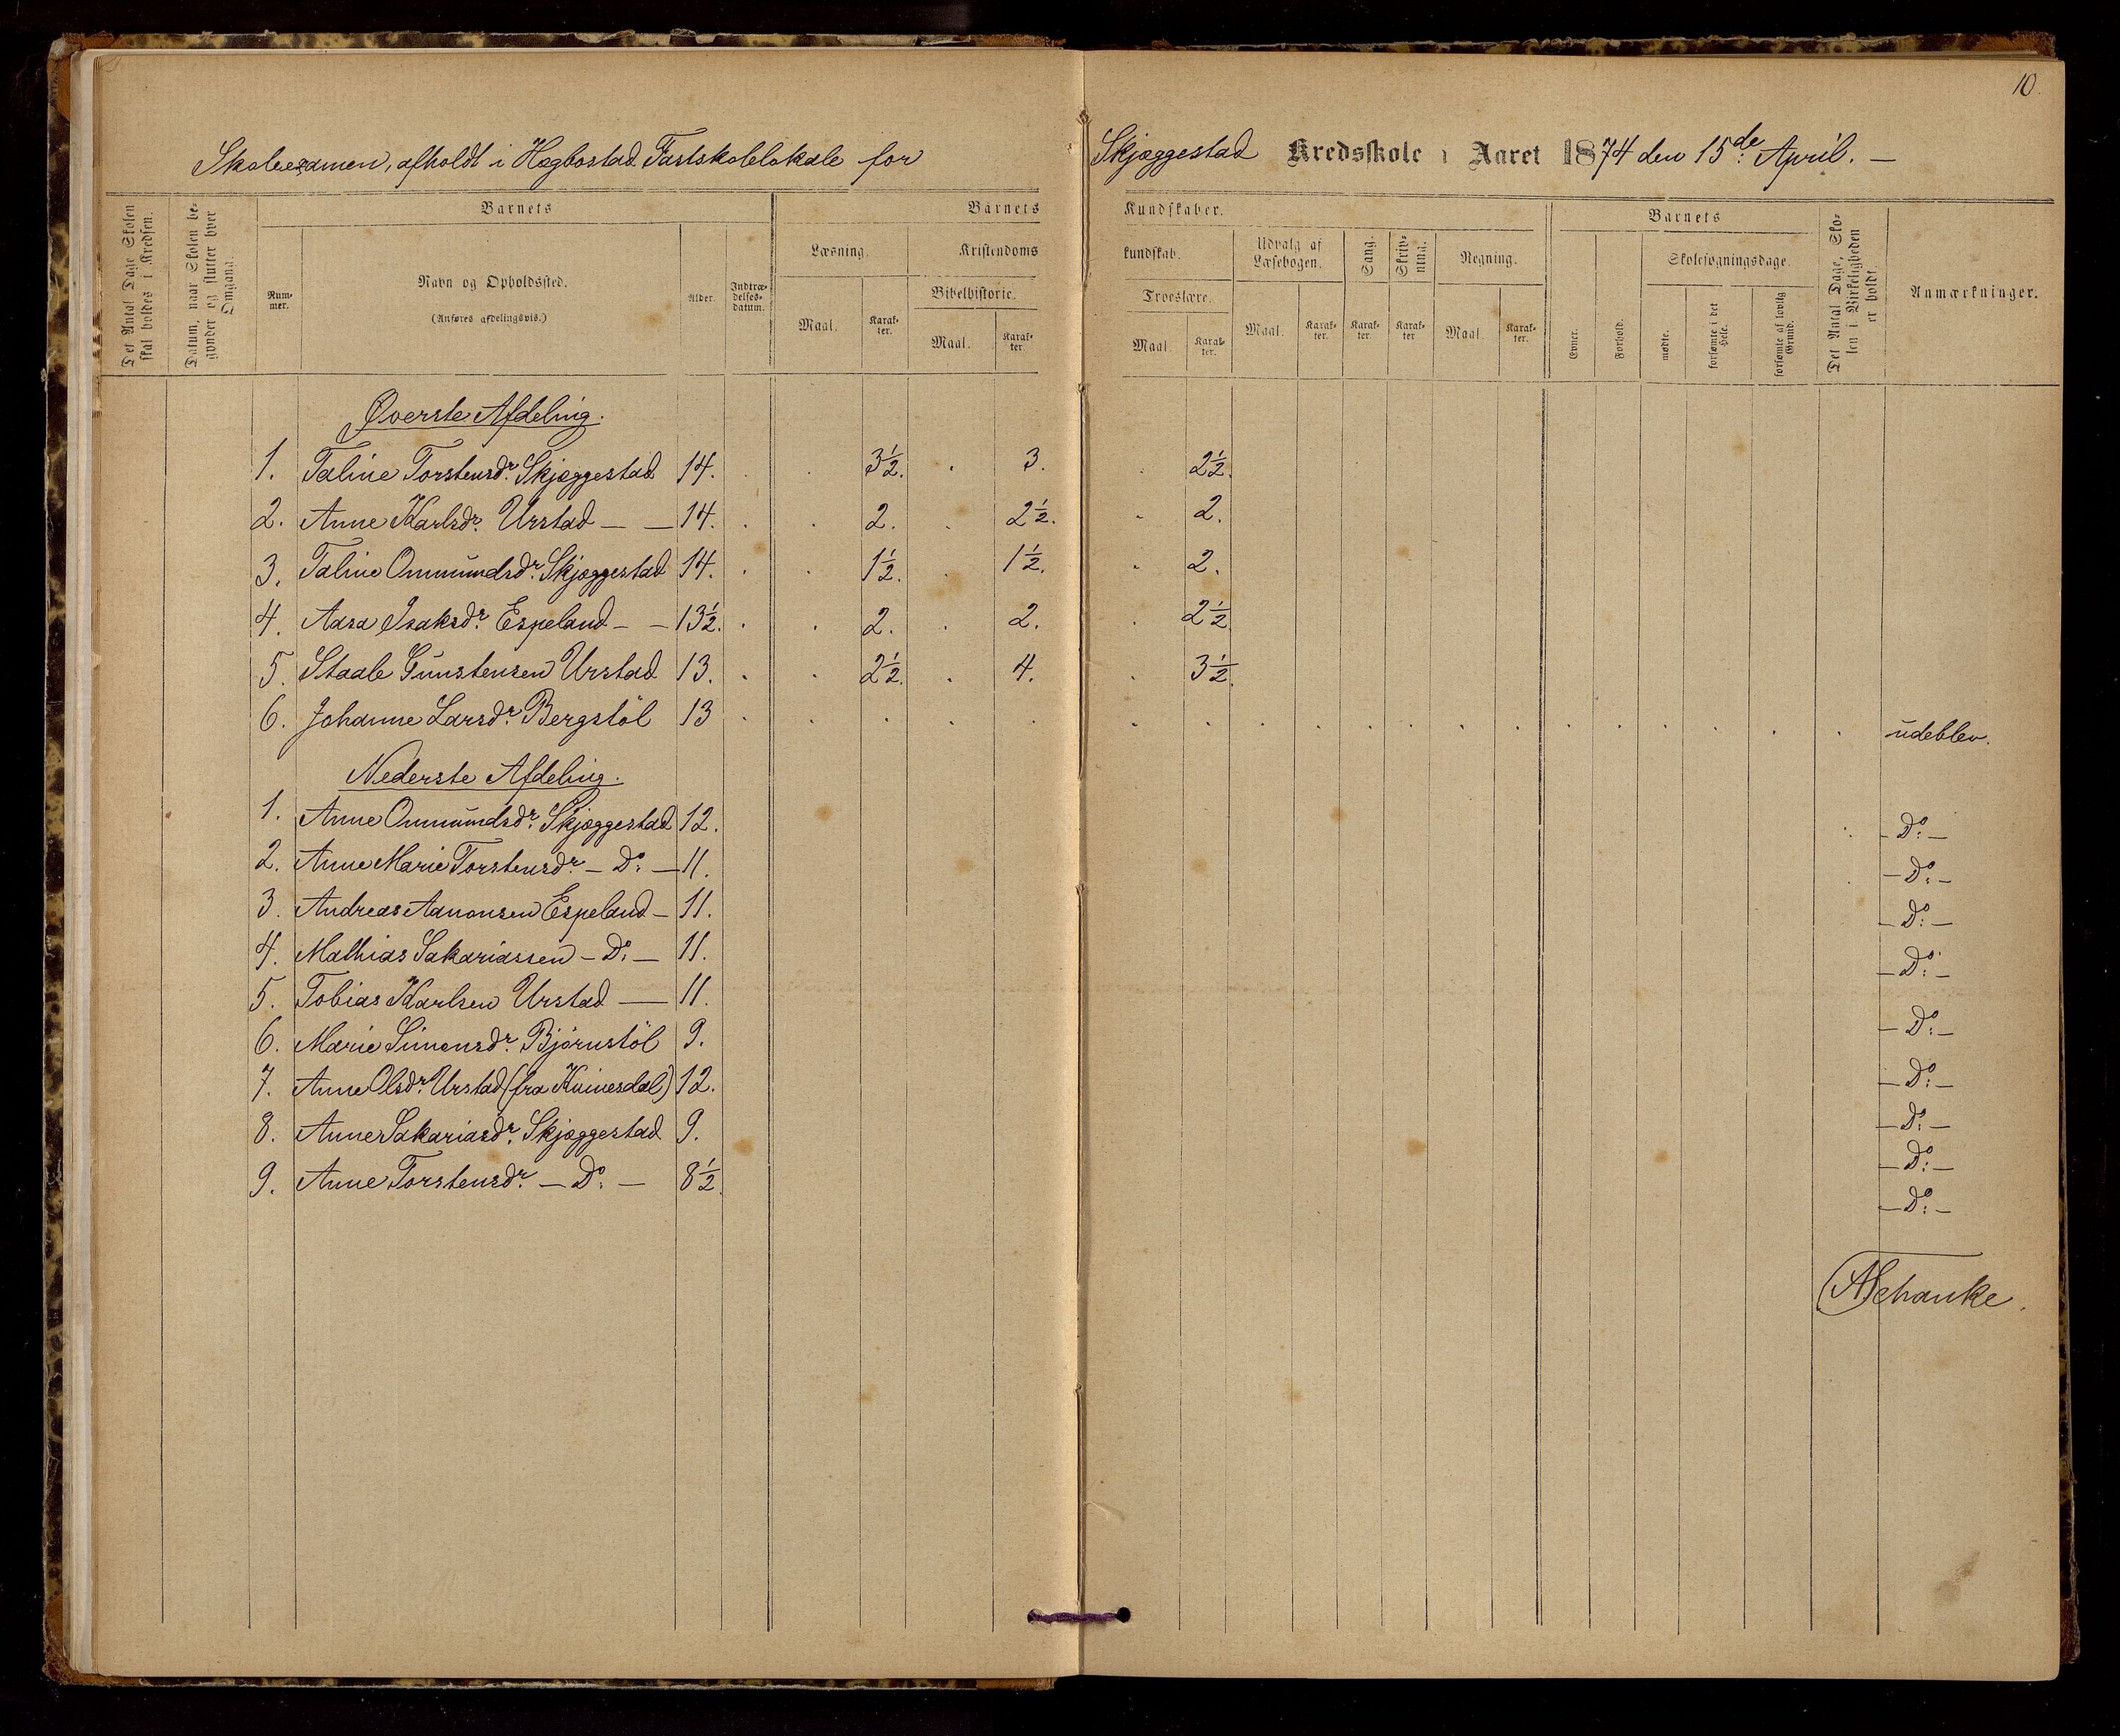 10.
Skoleexamen, afholdt i Hægbostad Fastskolelokale for Skjæggestad Kredsskole i Aaret 1874 den 15de April. —
Det Antal Dage Skolen skal holdes i Kredsen.
Datum, naar Skolen begynder og slutter hver Omgang.
Barnets
Nummer.
Navn og Opholdssted.
(Anføres afdelingsvis.)
Alder.
Indtrædelsesdatum.
Barnets Kundskaber.
Læsning.
Maal.
Karakter.
Kristendomskundskab.
Bibelhistorie.
Maal.
Karakter.
Troeslære.
Maal.
Karakter.
Udvalg af Læsebogen.
Maal.
Karakter.
Sang.
Karakter.
Skrivning.
Karakter
Regning.
Maal.
Karakter.
Barnets
Evner.
Forhold.
Skolesøgningsdage.
mødte.
forsømte i det Hele.
forsømte af lovlig Grund.
Det Antal Dage, Skolen i Virkeligheden er holdt.
Anmærkninger.
Øverste Afdeling.
1. Taline Torstensdr. Skjæggestad 14. 3½. 3. 2½.
2. Anne Karlsdr. Urstad — — 14. 2. 2½. 2.
3. Taline Ommundsdr. Skjæggestad 14. 1½. 1½. 2.
4. Aasa Isaksdr. Espeland — — 13½. 2. 2. 2½.
5. Staale Gunstensen Urstad 13. 2½. 4. 3½.
6. Johanne Larsdr. Bergstöl 13 udeblev.
Nederste Afdeling.
1. Anne Ommundsdr. Skjæggestad 12. — Do: —
2. Anne Marie Torstensdr. — Do: — 11. — Do: —
3. Andreas Aanonsen Espeland — 11. — Do: —
4. Mathias Sakariassen — Do: — 11. — Do: —
5. Tobias Karlsen Urstad — 11. — Do: —
6. Marie Simonsdr. Bjørnstöl 9. — Do: —
7. Anne Olsdr. Urstad (fra Kvinesdal) 12. — Do: —
8. Anne Sakariasdr. Skjæggestad 9. — Do: —
9. Anne Torstensdr. — Do: — 8½. — Do: —
A Schanke.